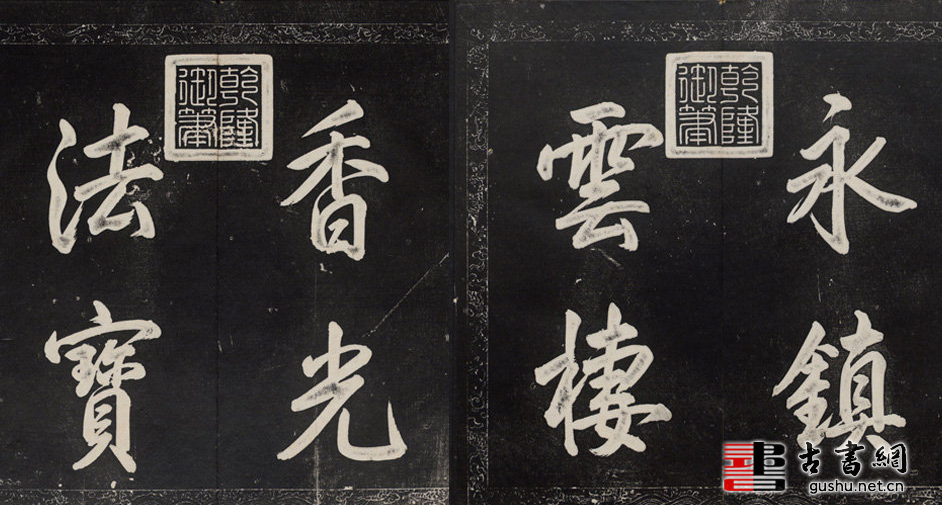 永鎮
雲棲
乾隆御筆
香光
法寶
乾隆御筆
古書網
gushu.net.cn